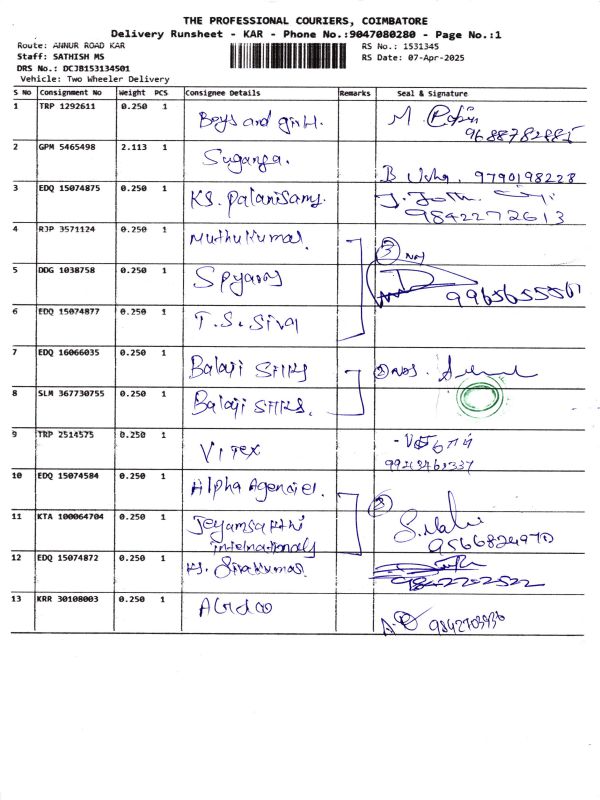 THE PROFESSIONAL COURIERS, COIMBATORE
Delivery Runsheet - KAR - Phone No.:9047080280 - Page No.:1
Route: ANNUR ROAD KAR
RS No.: 1531345
Staff: SATHISH MS
RS Date: 07-Apr-2025
DRS No.: DCJB153134501
Vehicle: Two Wheeler Delivery
S No Consignment No Weight PCS Consignee Details Remarks Seal & Signature
1 TRP 1292611 0.250 1 Boys and girls. M.
2 GPM 5465498 2.113 1 Suganya. B Usha. 9790198228
3 EDQ 15074875 0.250 1 KS. Palanisamy. 9842272613
4 RJP 3571124 0.250 1 Muthukumar. 3 Nos
5 DDG 1038758 0.250 1 Spyaros
6 EDQ 15074877 0.250 1 T.S. Siva
7 EDQ 16066035 0.250 1 Balaji Silks 2 Nos.
8 SLM 367730755 0.250 1 Balaji Silks.
9 TRP 2514575 0.250 1 Virex
10 EDQ 15074584 0.250 1 Alpha Agencies.
11 KTA 100064704 0.250 1 Jeyamsakthi
internationals
9566824970
12 EDQ 15074872 0.250 1 KS. Sivakumar.
13 KRR 30108003 0.250 1
9842703936